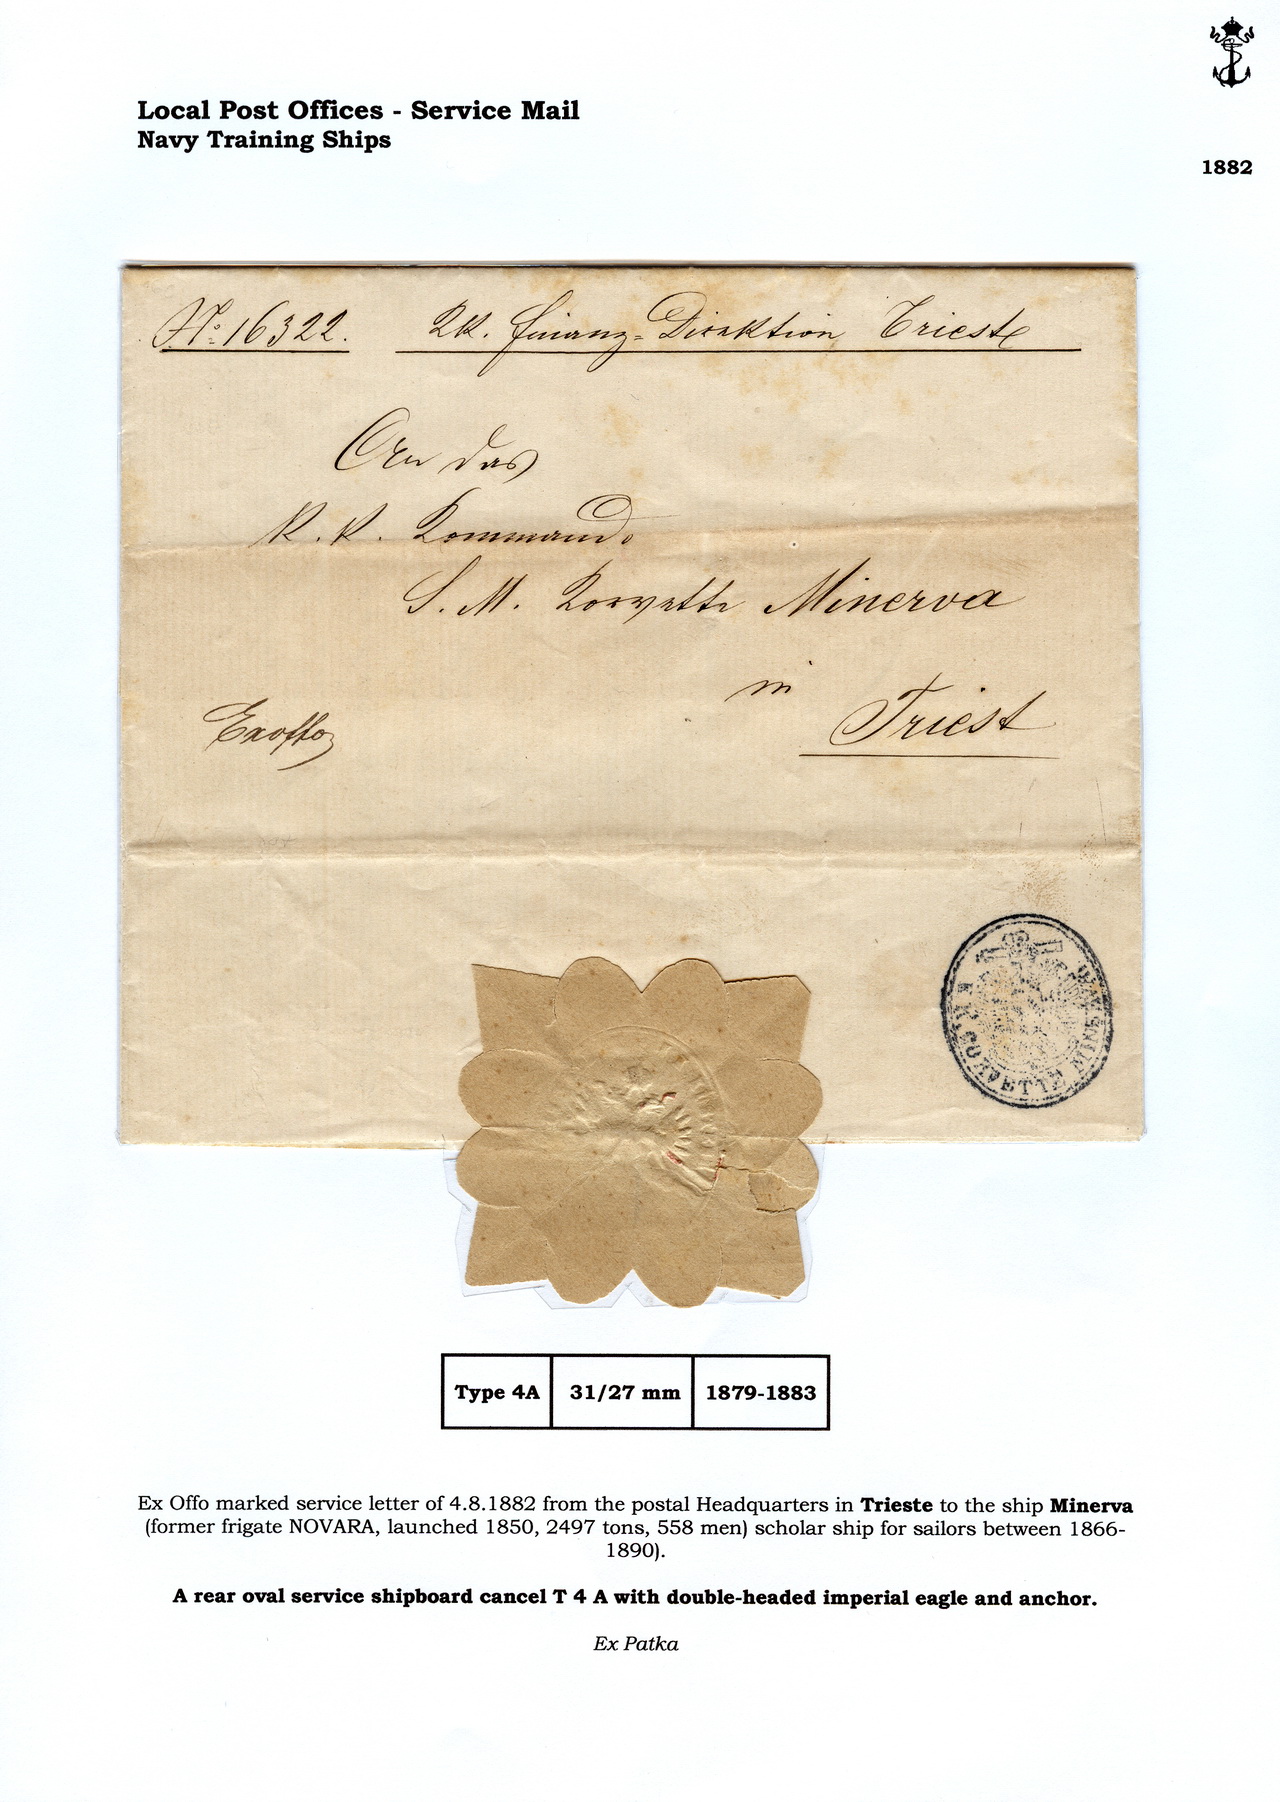 Local Post Offices - Service Mail
Navy Training Ships
1882
No. 16322. KK. Finanz-Direktion Trieste
An das
K. K. Kommando
S. M. Korvette Minerva
in
Triest
Exoffo
K. K. CORVETTE MINERVA
Type 4A 31/27 mm 1879-1883
Ex Offo marked service letter of 4.8.1882 from the postal Headquarters in Trieste to the ship Minerva
(former frigate NOVARA, launched 1850, 2497 tons, 558 men) scholar ship for sailors between 1866-
1890).
A rear oval service shipboard cancel T 4 A with double-headed imperial eagle and anchor.
Ex Patka